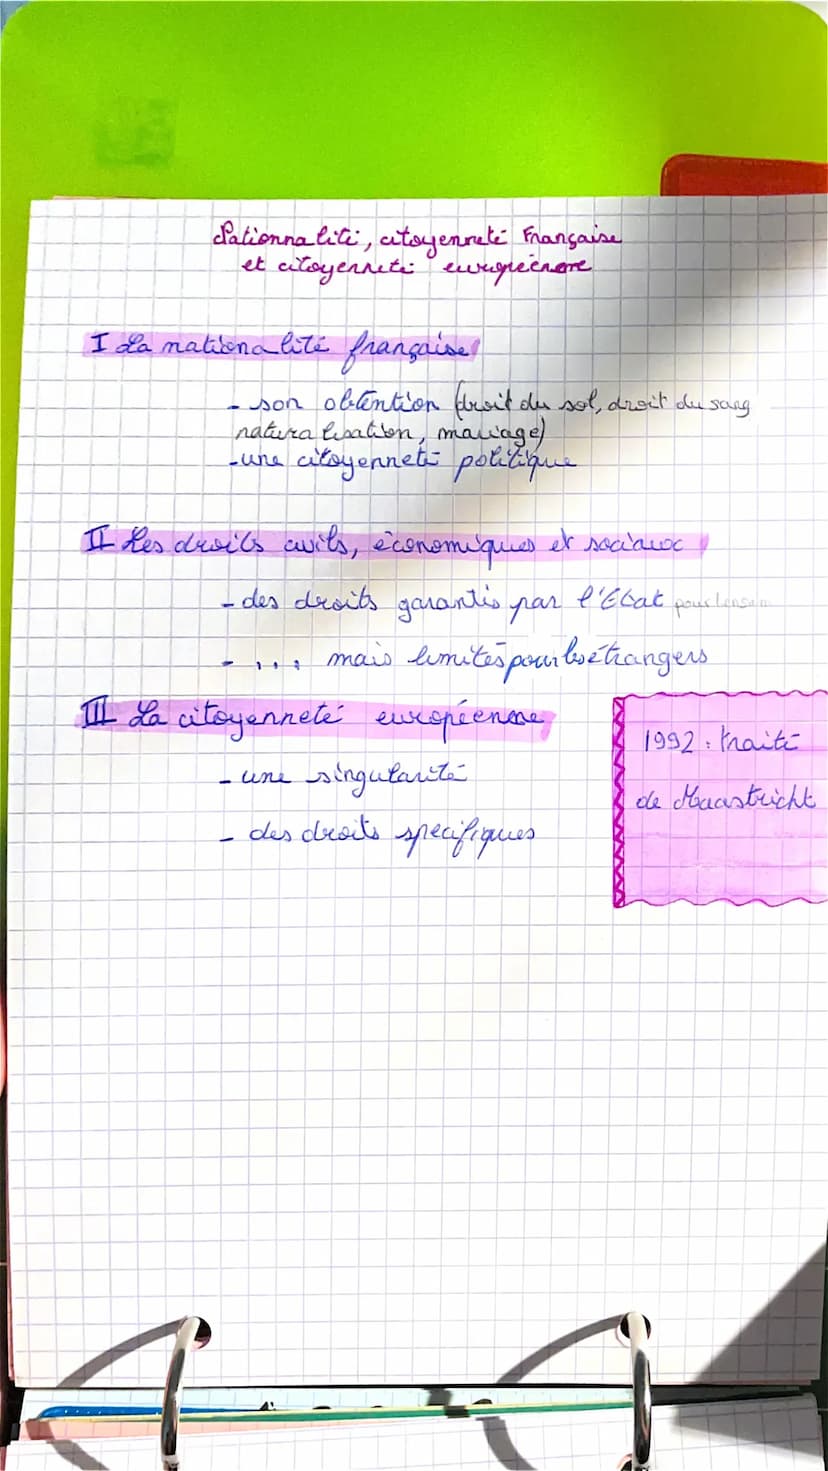 Nationnalité, citoyenneté Française
et citoyenneté européenne
I La nationalité française
- son obtention (droit du sol, droit du sang
naturalisation, mariage)
- une citoyenneté politique
II Les droits civils, économiques et sociaux
- des droits garantis par l'Etat pour
- ... mais limités pour les étrangers
III La citoyenneté européenne
- une singularité
- des droits spécifiques
1992 : traité
de Maastricht